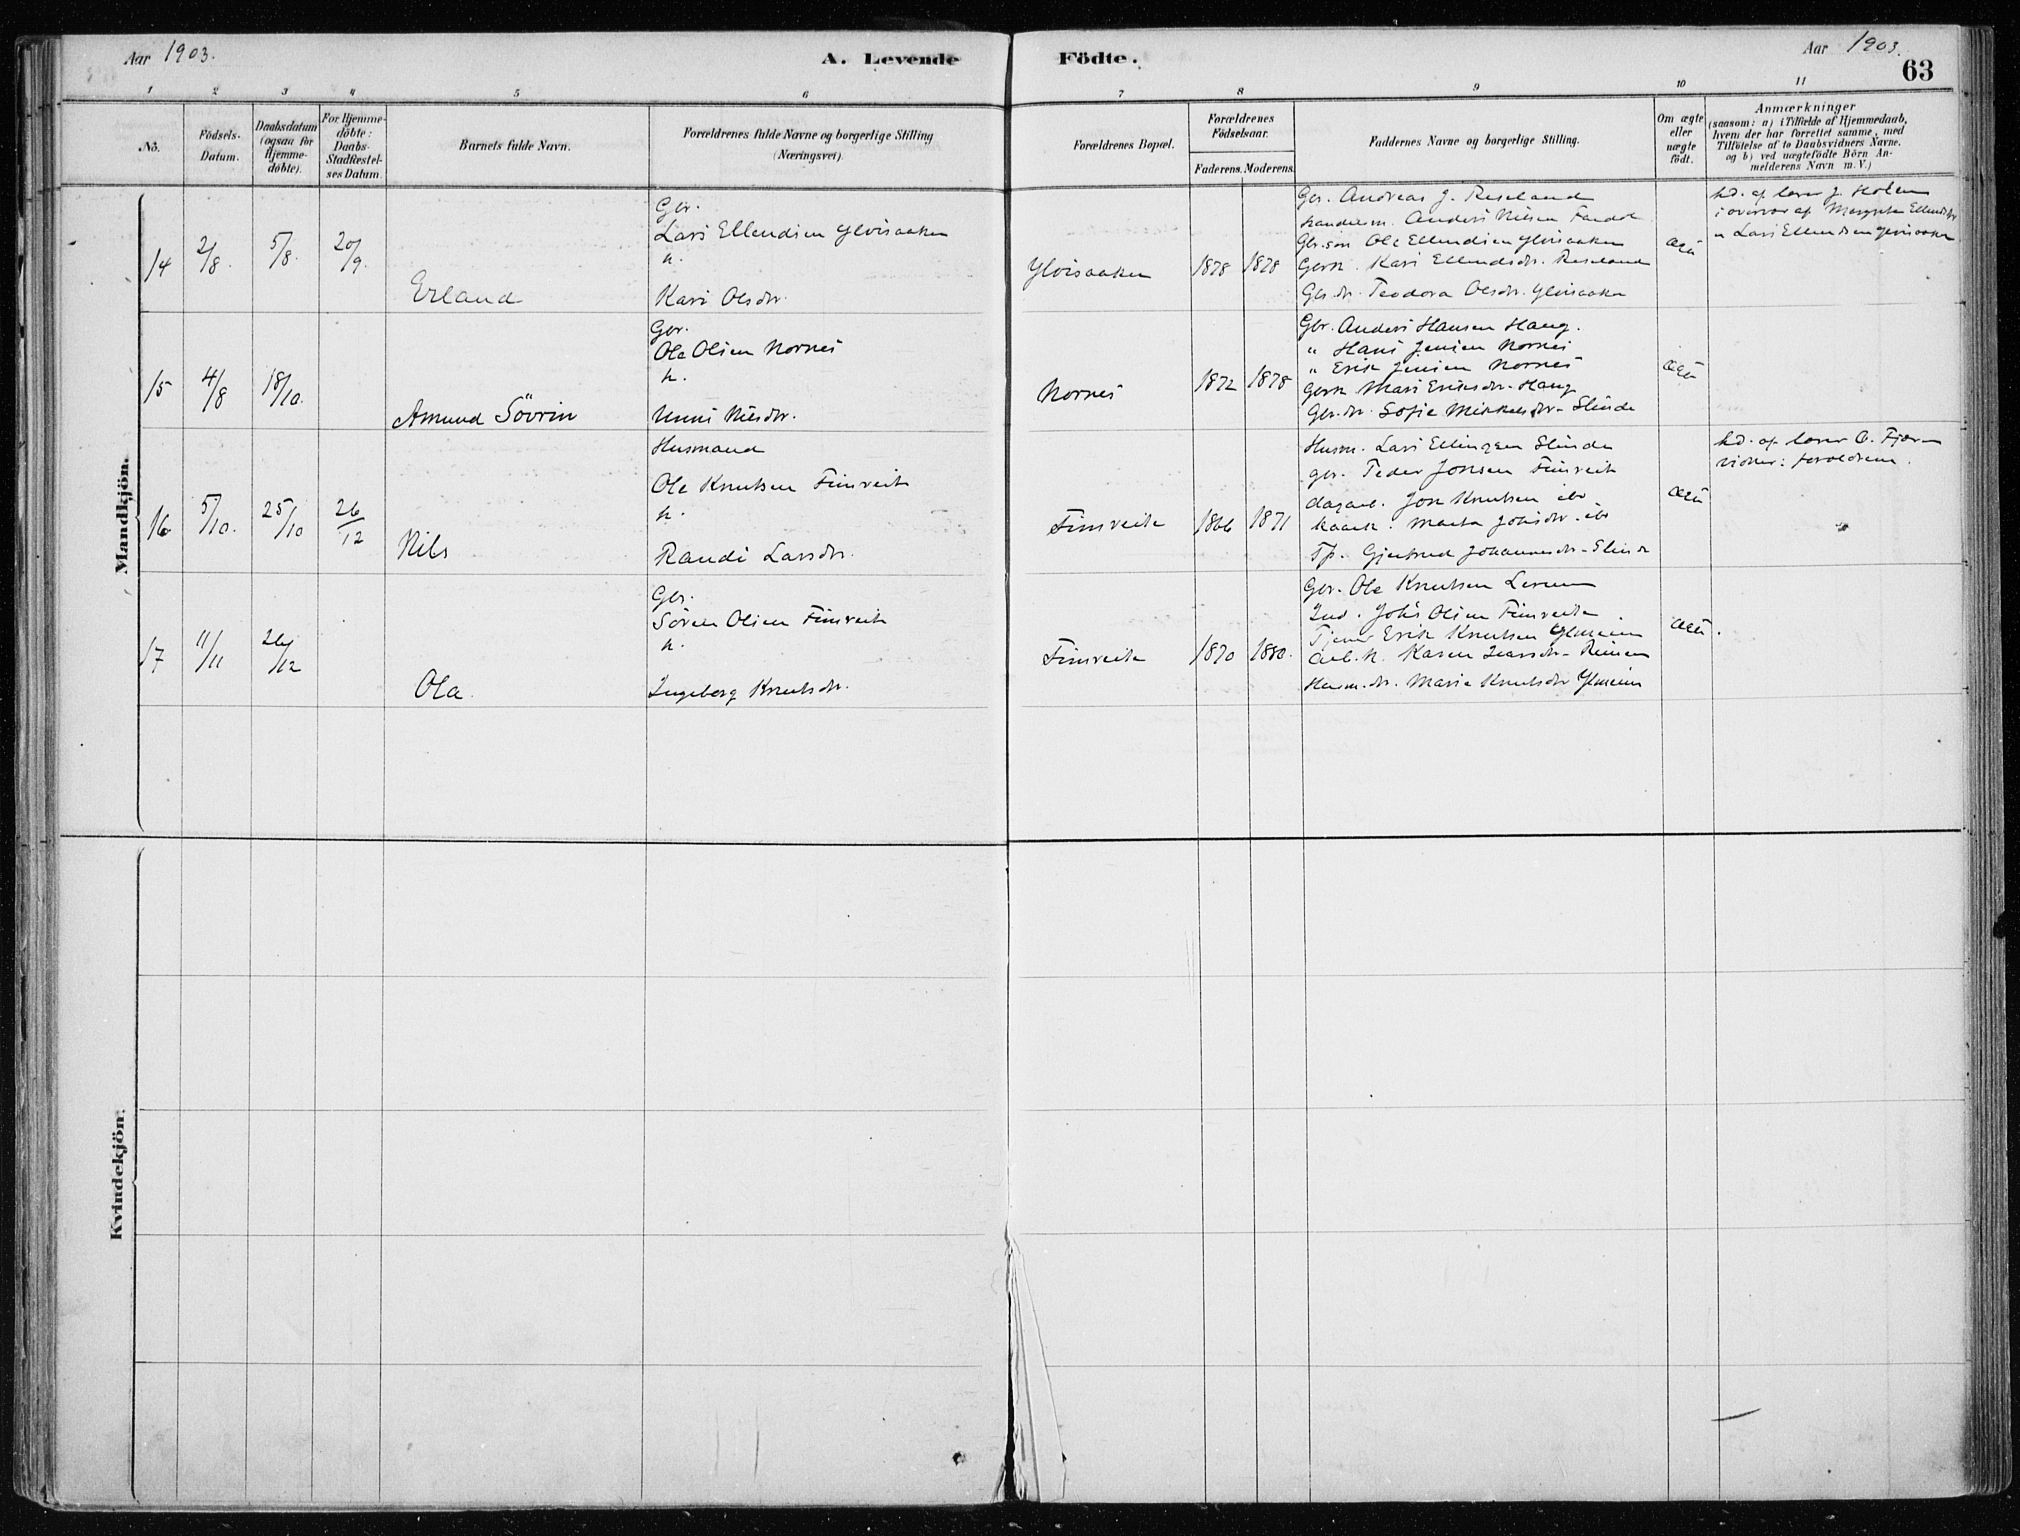 Aar 1903.
A. Levende
Födte.
Aar 1903.
63
1 2 3 4 5 6 7 8 9 10 11
No.
Födsels-
Datum.
Daabsdatum
(ogsaa for
Hjemme-
döbte).
For Hjemme-
döbte:
Daabs-
Stadfæstel-
ses Datum.
Barnets fulde Navn.
Forældrenes fulde Navne og borgerlige Stilling
(Næringsvei).
Forældrenes Bopæl.
Forældrenes
Födselsaar.
Faderens. Moderens.
Faddernes Navne og borgerlige Stilling.
Om ægte
eller
uægte
födt.
Anmærkninger
(saasom: a) i Tilfælde af Hjemmedaab,
hvem der har forrettet samme, med
Tilföielse af to Daabsvidners Navne.
og b) ved uægtefödte Börn An-
melderens Navn m. V.)
Mandkjön.
14
2/8.
5/8.
20/9.
Erland
Gbr.
Lars Ellendsen Ylvisaaker
h.
Kari Olsdr.
Ylvisaaker
1878
1878
Gbr. Andreas J. Reseland
Handelsm. Anders Nilsen
Gbr.søn Ole Ellendsen Ylvisaaker
Gbrk. Kari Ellendsdr. Reseland
Gbr.dr. Teodora Olsdr. Ylvisaaker
ægte
hd. af lærer J. Holen
i overvær af Ellendsdr
" Lars Ellendsen Ylvisaaker
15
4/8
18/10.
Amund Sövrin
Gbr.
Ole Olsen Nornes
h.
Unni Nilsdr.
Nornes
1872
1878
Gbr. Anders Hansen Haug.
" Hans Jensen Nornes
" Erik Jensen Nornes
Gbrk Mari Eriksdr. Haug
Gbr.dr. Sofie Mikkelsdr. Slinde
ægte
16
5/10.
25/10
26/12
Nils
Husmand
Ole Knutsen Fimreite
h.
Randi Larsdr.
Fimreite
1866
1871
Husm. Lars Ellingsen Slinde
gbr. Peder Jonsen Fimreite
dagarb. Jon Knutsen ib
Marta Johsdr. ib
Tp. Gjertrud Johannesdr. Slinde
ægte
hd. af lærer O.
vidner: forældrene.
17
11/11
26/12
Ola
Gbr.
Sören Olsen Fimreite
h.
Ingeborg Knutsdr.
Fimreite
1870
1880.
Gbr. Ole Knutsen Lerum
Ind. Johs Olsen Fimreite
Tjener Erik Knutsen Ylmeim
Arb.k. Karen
Husm.dr. Marie Knutsdr Ylmeim
ægte.
Kvindekjön.